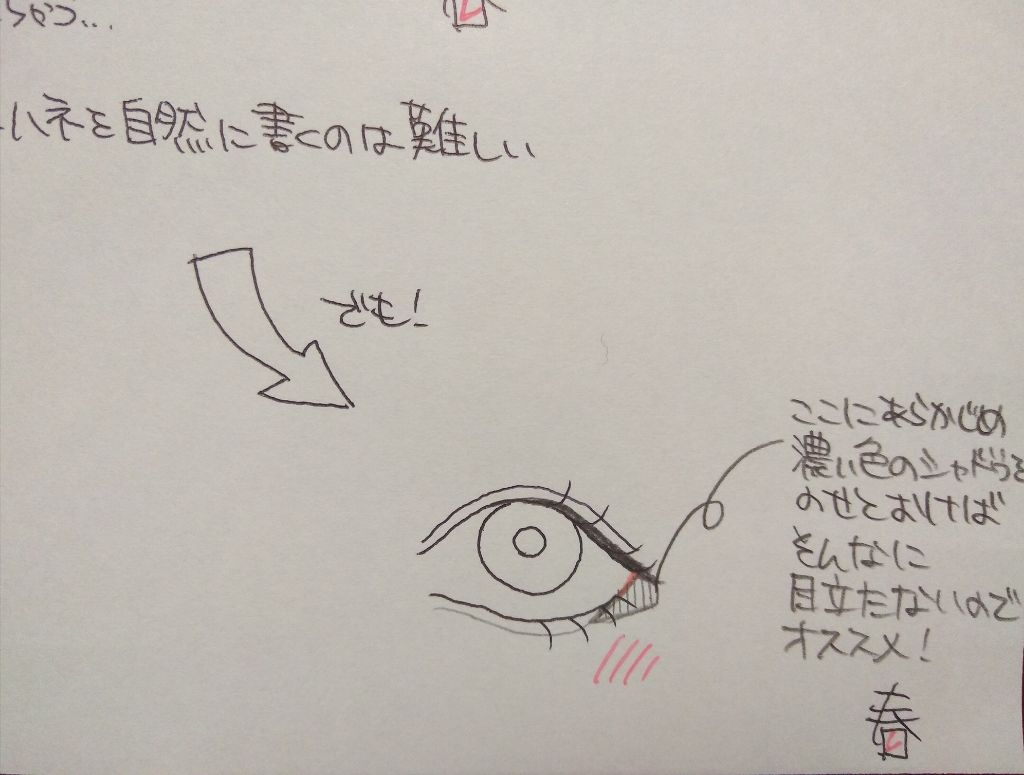 らかつ...
ハネを自然に書くのは難しい
でも!
ここにあらかじめ
濃い色のシャドウを
のせとおけば
そんなに
目立たないので
オススメ!
春